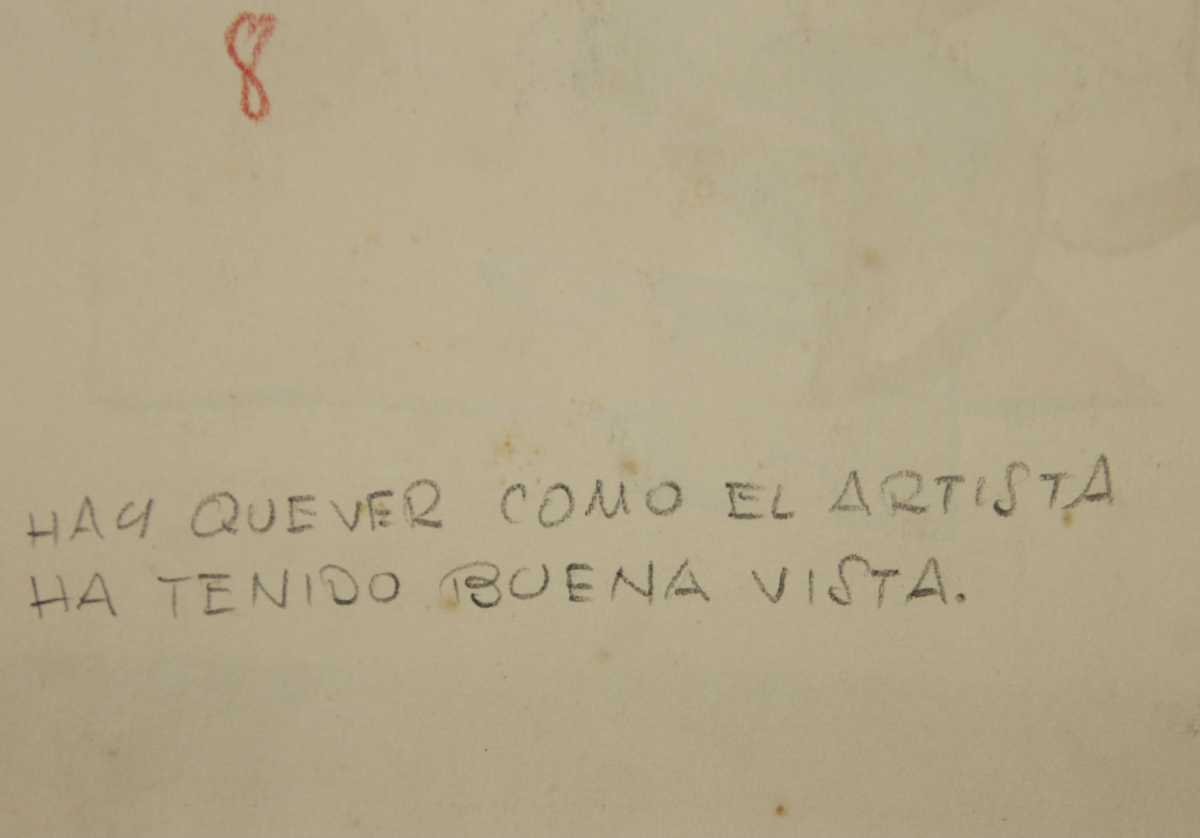 8
HAY QUEVER COMO EL ARTISTA
HA TENIDO BUENA VISTA.